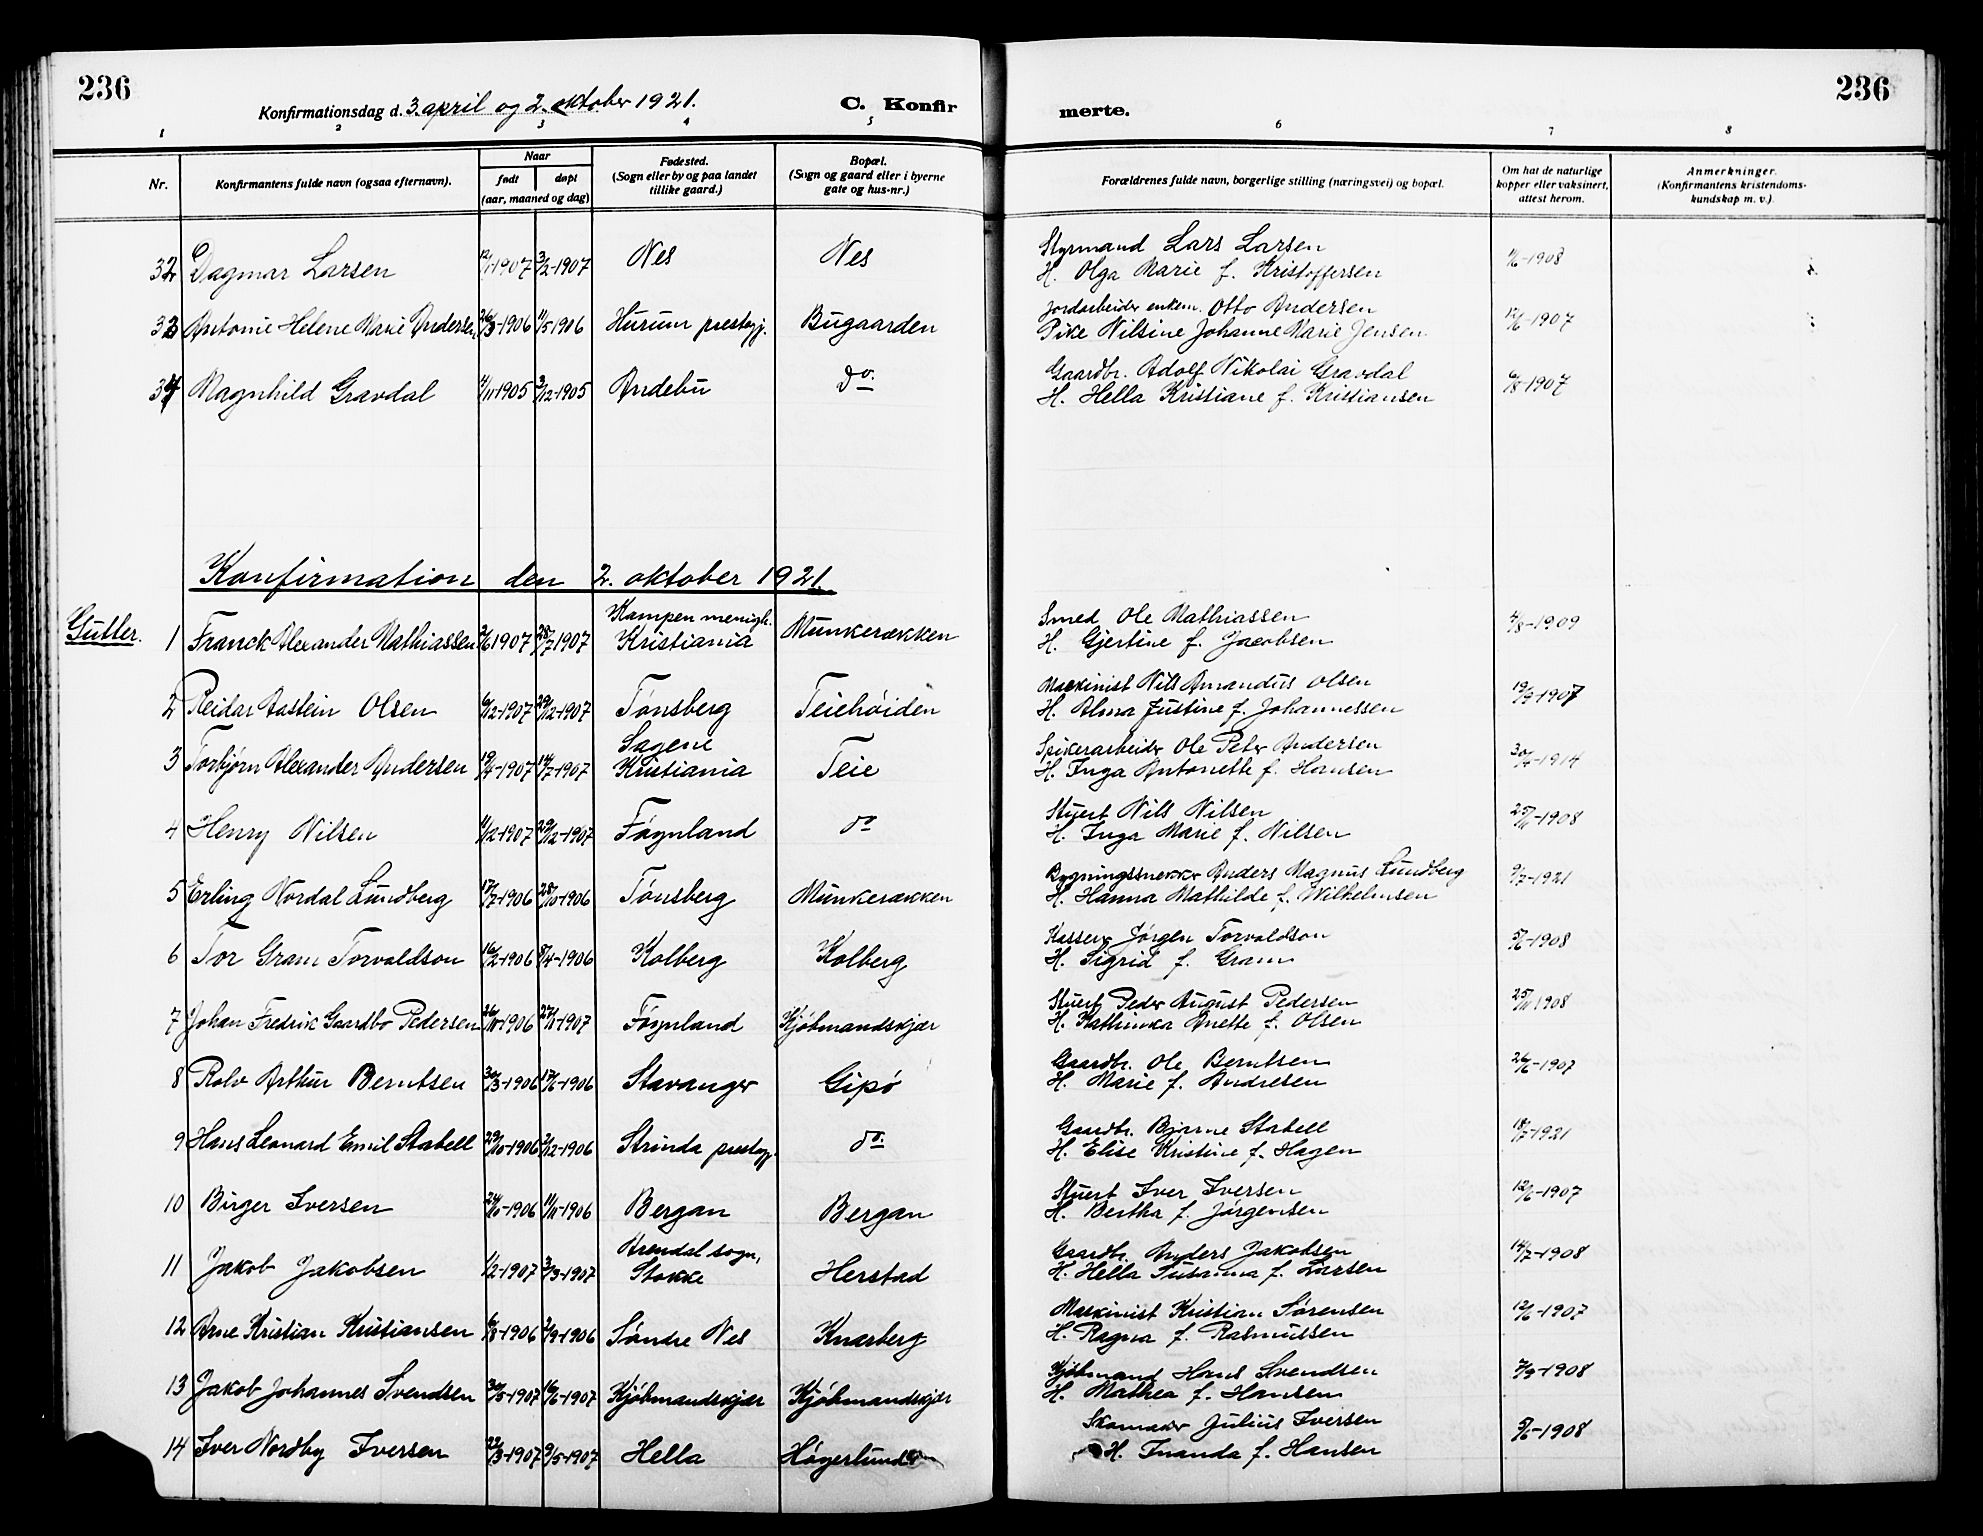 236
Konfirmationsdag d. 3. april og 2. oktober 1921.
C. Konfir
merte.
236
1 2 3 4 5 6 7 8
Nr.
Konfirmantens fulde navn (ogsaa efternavn).
Naar
født
døpt
(aar, maaned og dag)
Fødested.
(Sogn eller by og paa landet
tillike gaard.)
Bopæl.
(Sogn og gaard eller i byerne
gate og hus-nr.)
Forældrenes fulde navn, borgerlige stilling (næringsvei) og bopæl.
Om hat de naturlige
kopper eller vaksinert,
attest herom.
Anmerkninger.
(Konfirmantens kristendoms-
kundskap m. v.).
32 Dagmar Larsen 12/1-1907 3/2-1907 Nes Nes Styrmand Lars Larsen 11/6-1908
H. Olga Marie f. Kristoffersen
33 Antonie Helene Marie Andersen 26/3-1906 11/5 1906 Hurum prestegj. Bugaarden Jordarbeider enkem. Otto Andersen 12/6-1907
Pike Nilsine Johanne Marie Jensen
34 Magnhild Gravdal 4/11-1905 3/12-1905 Andebu do. Gaardbr. Adolf Nikolai Gravdal 6/8-1907
H. Hella Kristiane f. Kristiansen
Konfirmation den 2. oktober 1921.
Gutter.
Kampen menigh.
1 Franck Alexander Mathiassen 2/6 1907 28/7 1907 Kristiania Munkerækken Smed Ole Mathiassen 4/8-1909
H. Gjertine f. Jacobsen
2 Reidar Aastein Olsen 6/12-1907 29/12-1907 Tønsberg Teiehøiden Maskinist Nils Amandus Olsen 19/9-1907
H. Alma Justine f. Johannessen
Sagene
3 Torbjørn Alexander Andersen 19/4-1907 14/7-1907 Kristiania Teie Spikerarbeider Ole Peter Andersen 30/4-1914
H. Inga Antonette f. Hansen
4 Henry Nilsen 4/12-1907 29/12-1907 Føynland do Stuert Nils Nilsen 25/11-1908
H. Inga Marie f. Nilsen
5 Erling Nordal Lundberg 17/7-1906 28/10-1906 Tønsberg Munkerækken Bygningssnekker Anders Magnus Lundberg 9/7-1921
H. Hanna Mathilde f. Wilhelmsen
6 Tor Gram Torvaldson 16/2-1906 8/4-1906 Kolberg Kolberg Kasserer Jørgen Torvaldson 5/6-1908
H. Sigrid f. Gram
7 Johan Fredrik Gaardbo Pedersen 26/11-1906 27/1-1907 Føynland Kjøbmandskjær Stuert Peder August Pedersen 25/11 1908
H. Kathinka Anette f. Olsen
8 Rolv Arthur Berntsen 30/3-1906 17/6-1906 Stavanger Gipø Gaardbr. Ole Berntsen 26/6-1907
H. Marie f. Andresen
9 Hans Leonard Emil Stabell 29/10-1906 2/12-1906 Strinda prestegj. do. Gaardbr. Bjarne Stabell 18/7-1921
H. Elise Kristine f. Hagen
10 Birger Iversen 24/6-1906 11/11-1906 Bergan Bergan Stuert Iver Iversen 12/6-1907
H. Bertha f. Jørgensen
Arendal sogn,
11 Jakob Jakobsen 1/2-1907 3/3-1907 Stokke Herstad Gaardbr. Anders Jakobsen 14/7-1908
H. Hella Susanna f. Larsen
12 Arne Kristian Kristiansen 6/8-1906 2/9-1906 Søndre Nes Knarberg Maskinist Kristian Sørensen 12/6-1907
H. Ragna f. Rasmussen
13 Jakob Johannes Svendsen 30/5-1907 16/6-1907 Kjøbmandskjær Kjøbmandskjær Kjøbmand Hans Svendsen 7/9-1908
H. Mathea f. Hansen
14 Iver Nordby Iversen 23/3-1907 9/5-1907 Hella Høgerlund Skomaker Julius Iversen 5/6-1908
H. Inanda f. Hansen